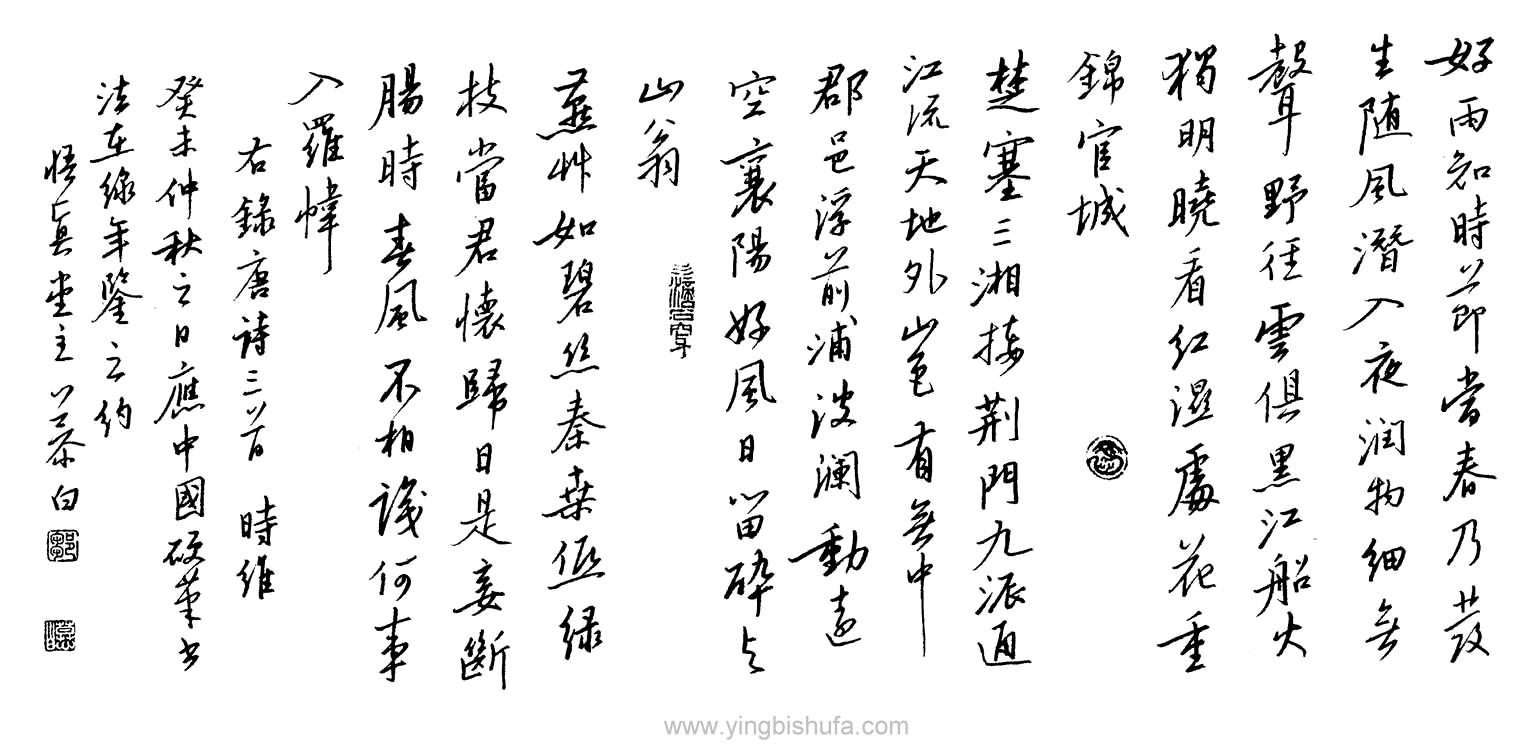 好雨知時節當春乃發
生随風潛入夜润物细無
聲野径雲俱黑江船火
獨明曉看红濕處花重
錦官城
楚塞三湘接荆門九派通
江流天地外山色有無中
郡邑浮前浦波澜動遠
空襄陽好風日留醉与
山翁
燕艸如碧丝秦桑低绿
枝當君懷歸日是妾斷
腸時春風不相識何事
入羅幃
右錄唐詩三首 時維
癸未仲秋之日應中國硬筆书
法在線年鑒之約
悟真堂主 白
www.yingbishufa.com